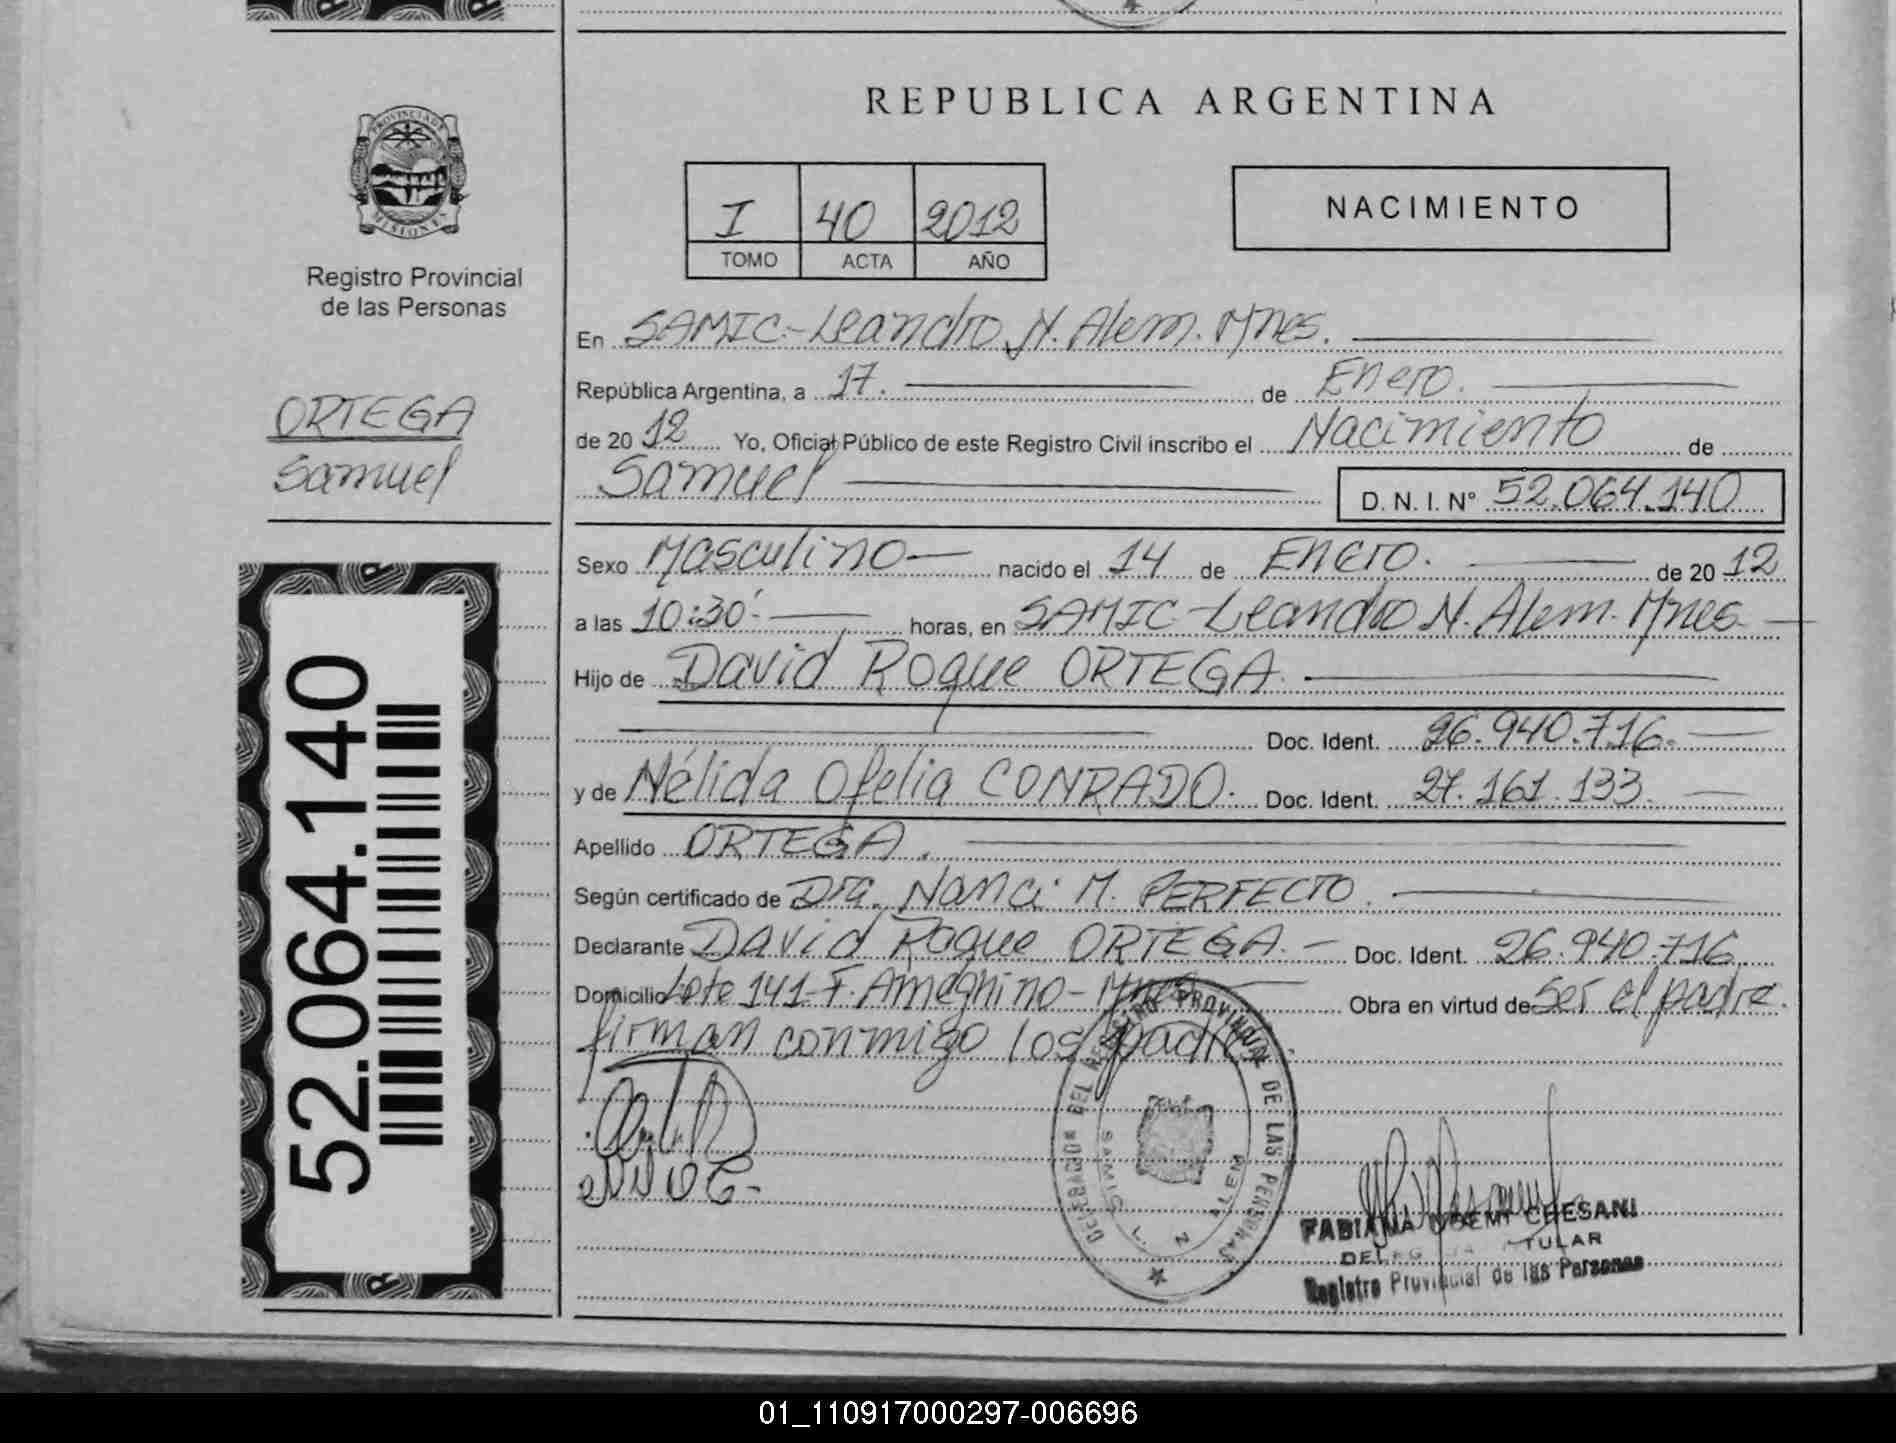 REPUBLICA ARGENTINA
PROVINCIA DE
MISIONES
Registro Provincial
de las Personas
ORTEGA
Samuel
52.064.140
I 40 2012
TOMO ACTA AÑO
NACIMIENTO
En SAMIC-Leandro N. Alem. Mnes.
República Argentina, a 17. de Enero.
de 2012 Yo, Oficial Público de este Registro Civil inscribo el Nacimiento de
Samuel D. N. I. Nº 52.064.140
Sexo Masculino nacido el 14 de Enero. de 2012
a las 10:30' horas, en SAMIC-Leandro N. Alem. Mnes.
Hijo de David Roque ORTEGA.
Doc. Ident. 26.940.716.
y de Nélida Ofelia CONRADO. Doc. Ident. 27.161.133.
Apellido ORTEGA.
Según certificado de Dra. Nanci M. PERFECTO.
Declarante David Roque ORTEGA. Doc. Ident. 26.940.716
Domicilio Lote 141-F. Ameghino-Mnes Obra en virtud de Ser el padre.
firman conmigo los padres.
DELEGACION DEL REGISTRO PROVINCIAL DE LAS PERSONAS
SAMIC L. N. ALEM
FABIANA NOEMI CHESANI
DELEGADA TITULAR
Registro Provincial de las Personas
01_110917000297-006696